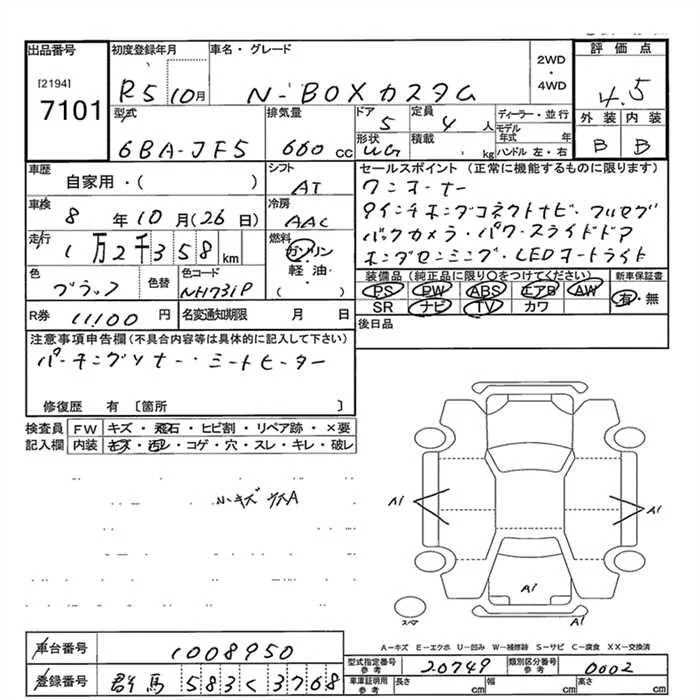 出品番号
[2194]
7101
初度登録年月
R5 10月
車名・グレード
N-BOXカスタム
2WD
・
4WD
評価点
4.5
外装 内装
B B
型式
6BA-JF5
排気量
660 cc
ドア
5
定員
4 人
ディーラー・並行
モデル年式 年
形状
UG
積載
kg
ハンドル 左・右
車歴
自家用・( )
シフト
AT
セールスポイント (正常に機能するものに限ります)
ワンオーナー
9インチホンダコネクトナビ・フルセグ
バックカメラ・パワースライドドア
ホンダセンシング・LEDオートライト
車検
8年10月(26日)
冷房
AAC
走行
1万2千358km
燃料
ガソリン
軽油・
( )
色
ブラック
色替
色コード
NH731P
装備品 (純正品に限り○をつけてください)
PS PW ABS エアB AW
SR ナビ TV カワ
新車保証書
有・無
R券 11,100 円
名変通知期限 月 日
後日品
注意事項申告欄(不具合内容等は具体的に記入して下さい)
パーキングソナー・シートヒーター
修復歴 有 〔箇所 〕
検査員
記入欄
FW キズ・飛石・ヒビ割・リペア跡・×要
内装 キズ・汚レ・コゲ・穴・スレ・キレ・破レ
小キズ
A1
A1
A1
スペア
A1
A-キズ E-エクボ U-凹み W-補修跡 S-サビ C-腐食 XX-交換済
車台番号 1008950
登録番号 群馬 583 く 3768
型式指定番号 参考 20749
類別区分番号 参考 0002
車庫証明用 参考 長さ cm 幅 cm 高さ cm